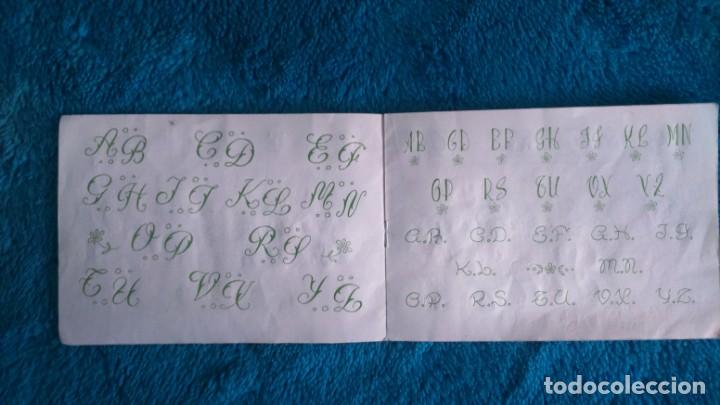 AB CD EF
GH IJ KL MN
OP RS
TU VX YZ
AB CD EF GH IJ KL MN
OP RS TU VX YZ
A.B. C.D. E.F. G.H. I.J.
K.L. M.N.
O.P. R.S. T.U. V.X. Y.Z.
todocoleccion.net